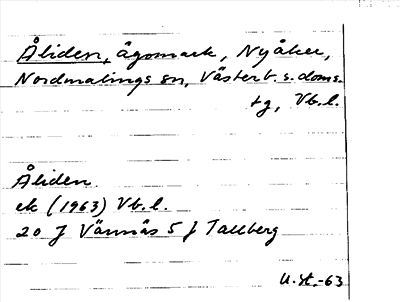 Åliden, ägomark, Nyåker,
Nordmalings sn, Västerb. s. doms-
tg, Vb. l.
Åliden
ek (1963) Vb. l.
20 J Vännäs 5 f Tallberg
-63